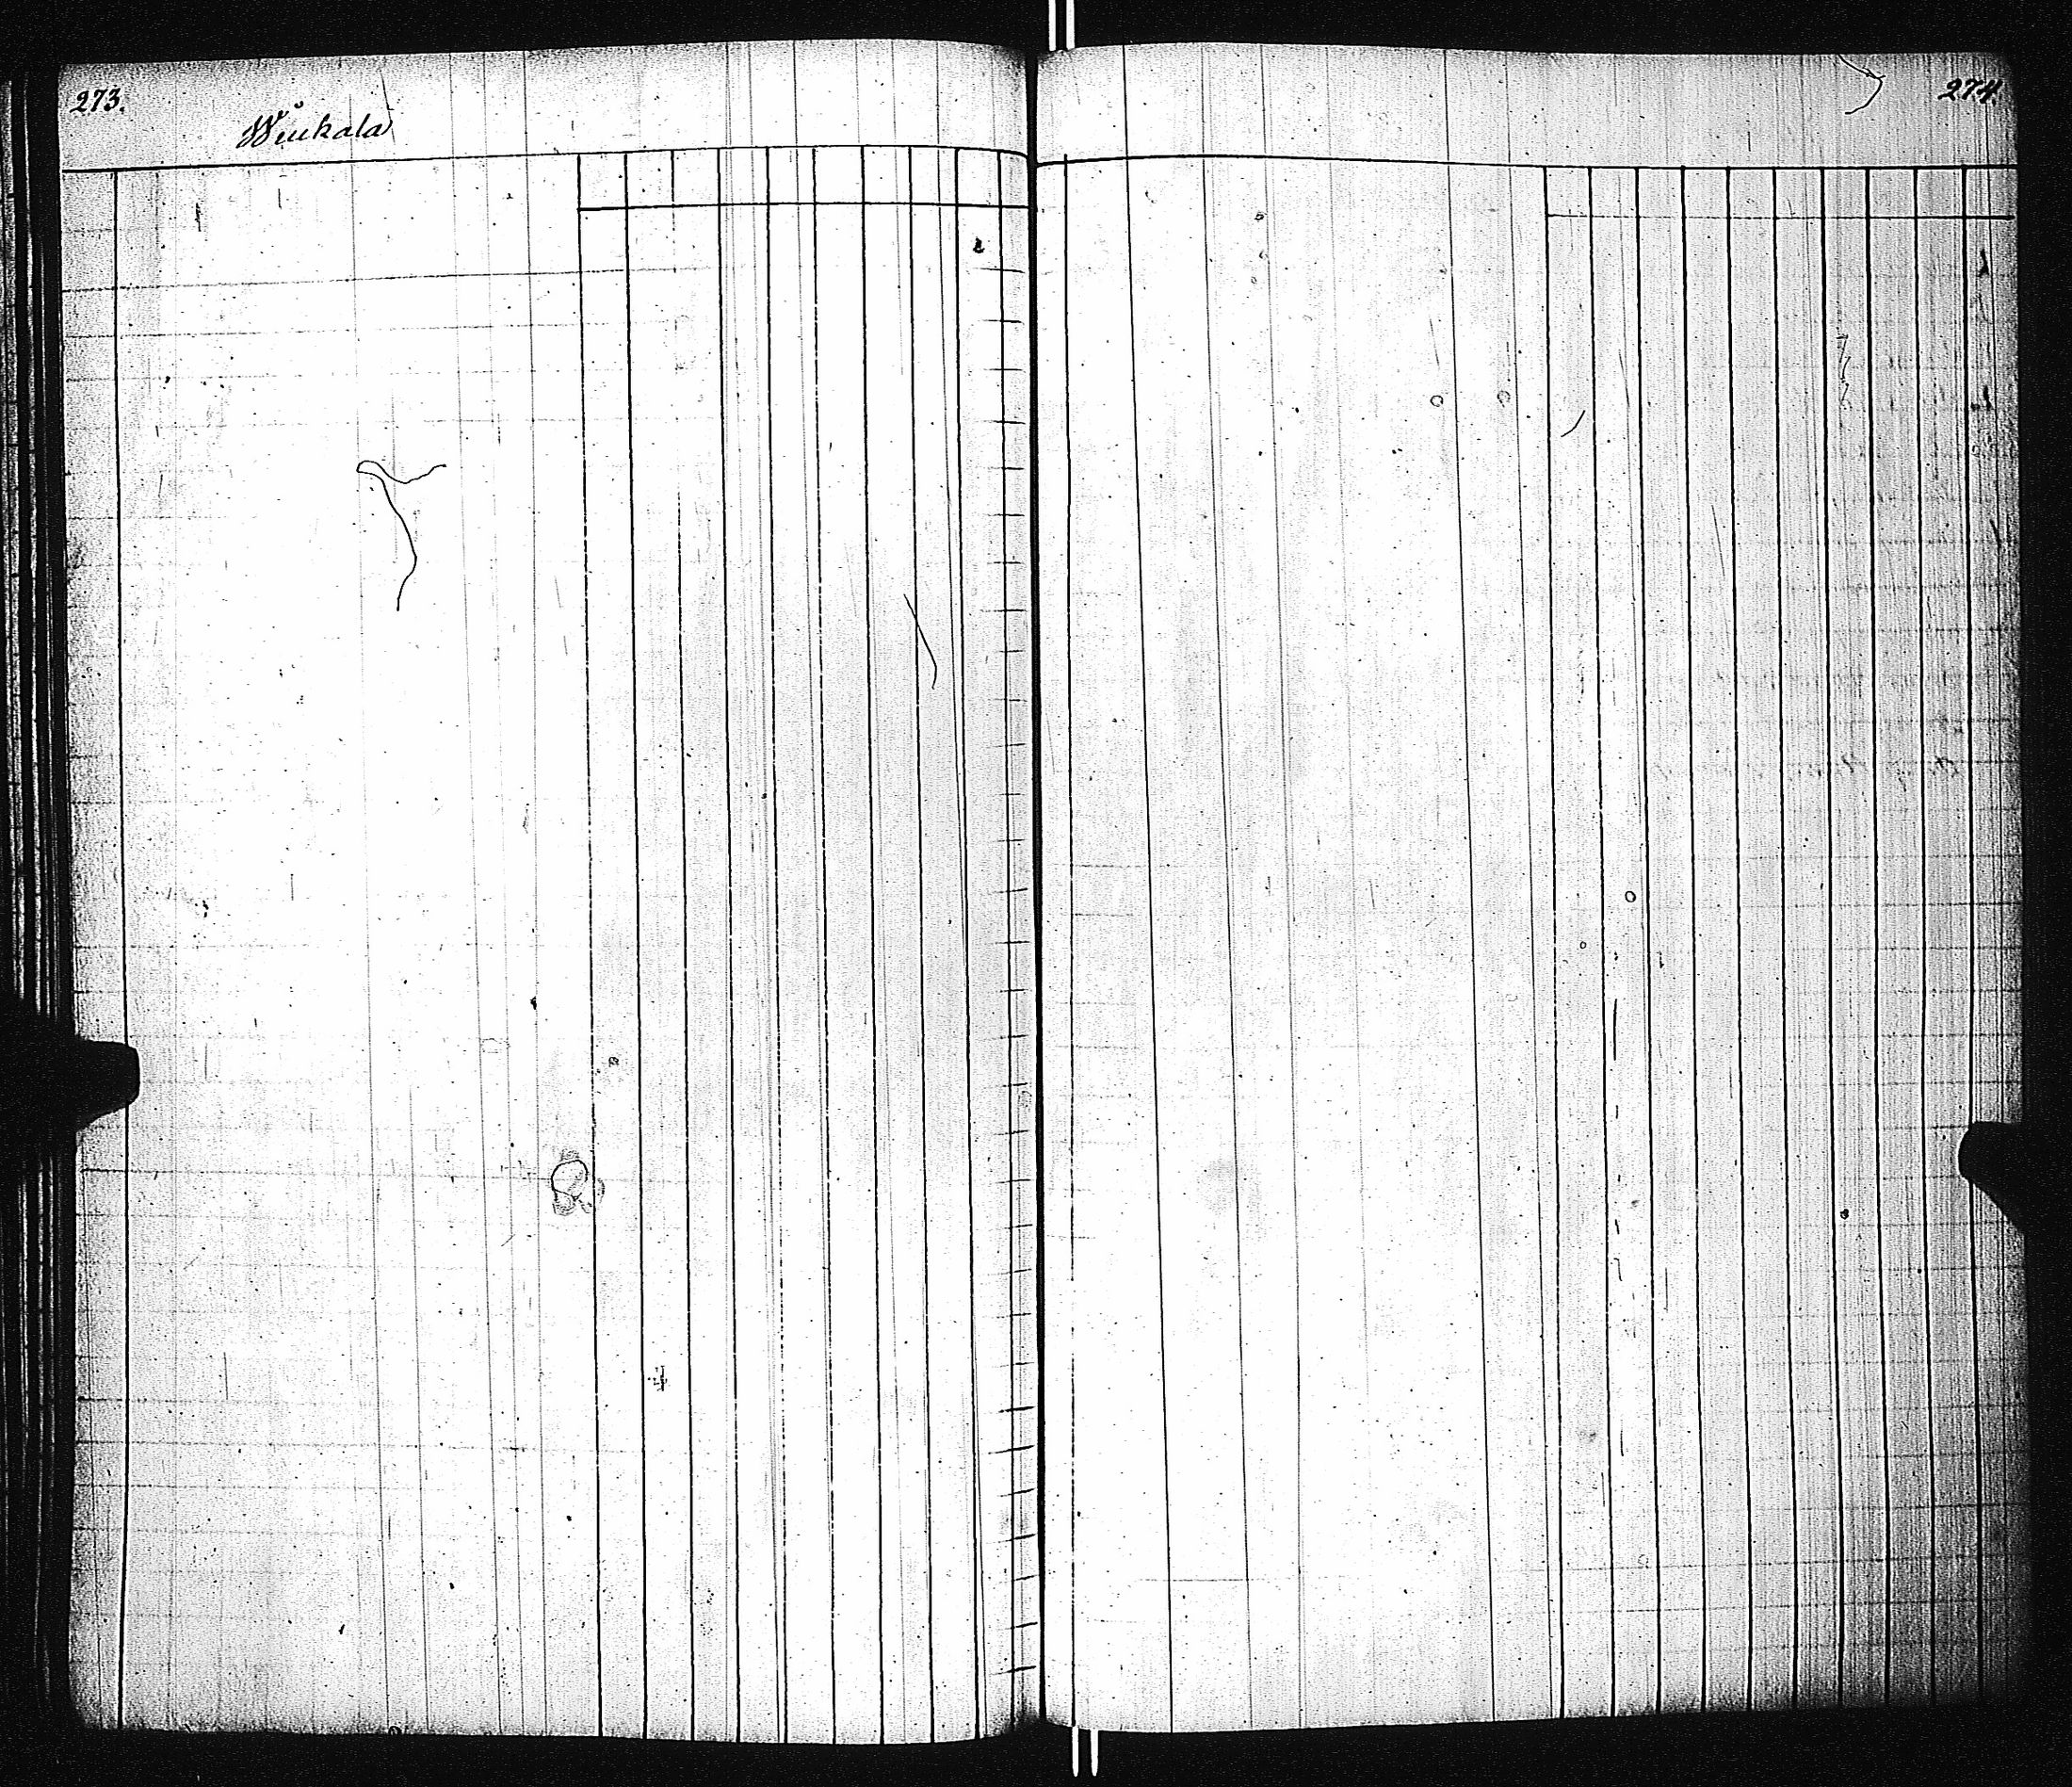 273.
Wiukala
274.